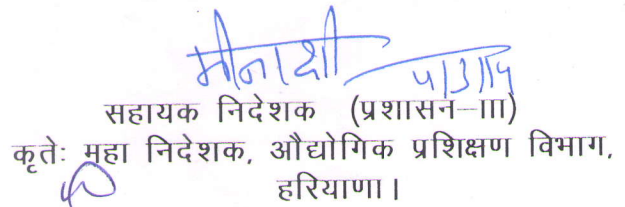 मीनाक्षी
सहायक निदेशक (प्रशासन–III)
कृतेः महा निदेशक, औद्योगिक प्रशिक्षण विभाग,
हरियाणा।